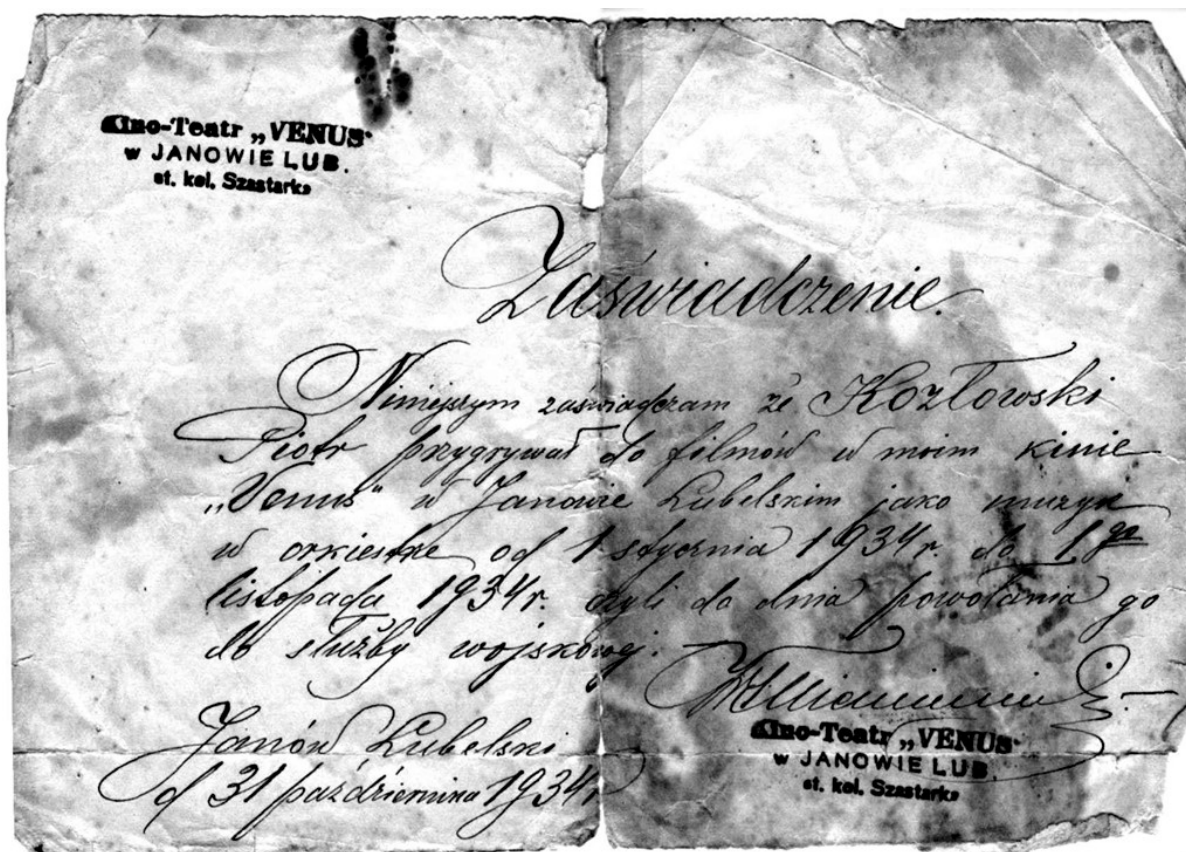 Kino-Teatr „VENUS"
w JANOWIE LUB.
st. kol. Szastarka
Zaświadczenie.
Niniejszym zaświadczam że Kozłowski
Piotr przygrywał do filmów w moim kinie
„Venus" w Janowie Lubelskim jako muzyk
w orkiestrze od 1 stycznia 1934 r. do 1go
listopada 1934 r. czyli do dnia powołania go
do służby wojskowej. —
Kino-Teatr „VENUS"
w JANOWIE LUB.
st. kol. Szastarka
Janów Lubelski
d 31 październina 1934 r